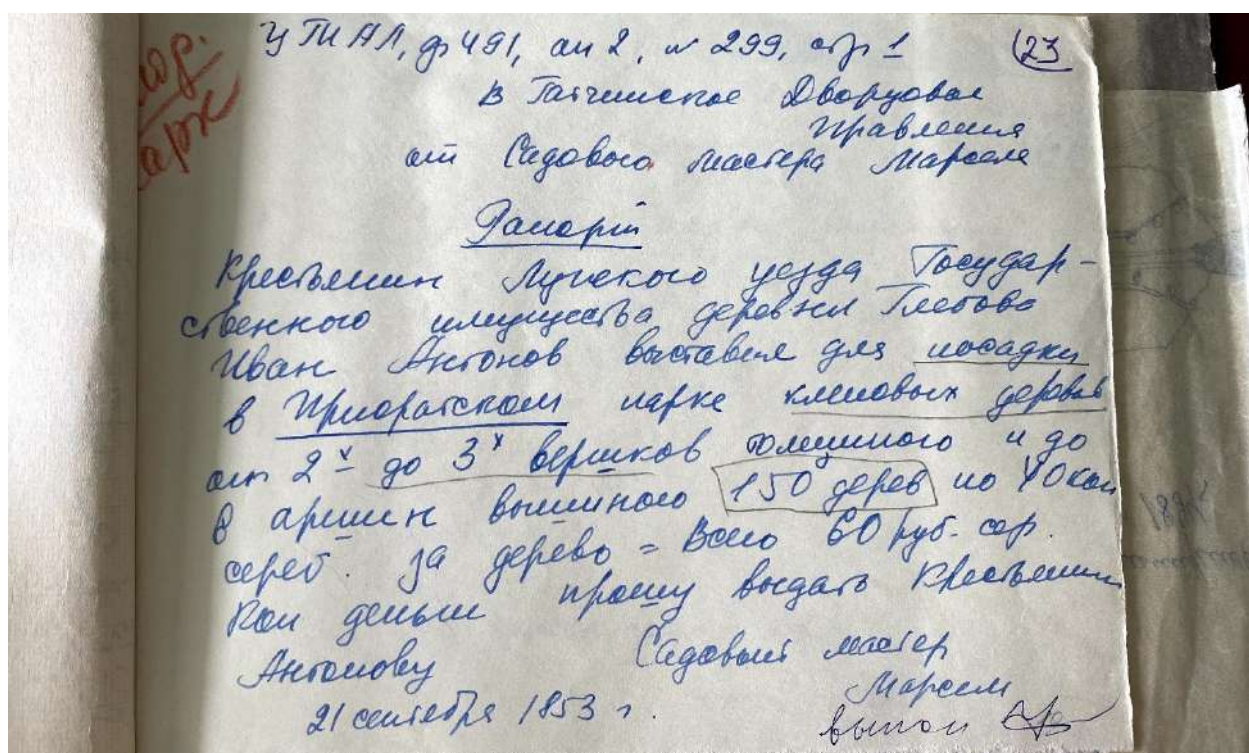 ЦГИАЛ, ф 491, оп 2, № 299, стр 1 (23)
В Гатчинское Дворцовое
Правление
от Садового мастера Марсели
парк
Рапорт
Крестьянин Лужского уезда Государ-
ственного имущества деревни Глебово
Иван Антонов выставил для посадки
в Приоратском парке кленовых деревьев
от 2х до 3х вершков толщиною и до
8 аршин вышиною 150 дерев по 40 коп
сереб. за дерево = Всего 60 руб. сер.
Кои деньги прошу выдать Крестьянину
Антонову
Садовый мастер
Марсели
21 сентября 1853 г.